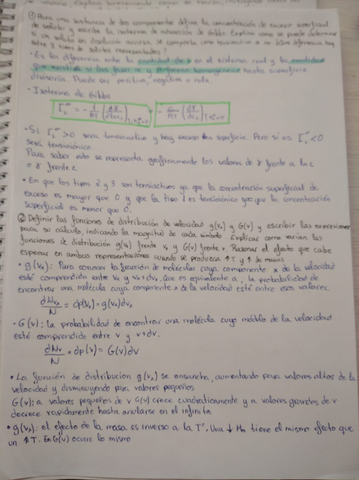 ① Para una sustancia de dos componentes define la concentración de exceso superficial
de soluto y escribe la isoterma de adsorción de Gibbs. Explica como se puede determinar
si un soluto en disolución acuosa, se comporta como tensioactivo o no. Que diferencias hay
entre 3 tipos de solutos representados?
- Es la diferencia entre la cantidad de i en el sistema real y la cantidad
hasta superficie
divisoria. Puede ser positiva, negativa o nula.
- Isoterma de Gibbs
- Si Γ > 0 será tensioactivo y hay exceso en superficie. Pero si es Γ < 0
será tensoiónico.
Para saber esto se representa gráficamente los valores de γ frente a ln c
o γ frente c
- En que los tipos 2 y 3 son tensoactivos ya que la concentración superficial de
exceso es mayor que 0 y que la tipo 1 es tensoiónico ya que la concentración
superficial es menor que 0.
② Definir las funciones de distribución de velocidad g(vx) y G(v) y escribir las expresiones
para su cálculo, indicando la magnitud de cada símbolo. Explicar como varían las
funciones de distribución g(vx) frente vx y G(v) frente v. Razonar el efecto que cabe
esperar en ambas representaciones cuando se produce ↑T y ↑ de masas
• g(vx): Para conocer la fracción de moléculas cuya componente x de la velocidad
esté comprendida entre vx y vx + dvx, que es equivalente a, la probabilidad de
encontrar una molécula cuya componente x de la velocidad esté entre esos valores.
dNvx/N = dp(vx) = g(vx)dvx
• G(v): la probabilidad de encontrar una molécula cuyo módulo de la velocidad
esté comprendido entre v y v+dv.
dNv/N = dp(v) = G(v)dv
• La función de distribución g(vx) se ensancha, aumentando para valores altos de la
velocidad y disminuyendo para valores pequeños
G(v): a valores pequeños de v G(v) crece cuadraticamente y a valores grandes de v
decrece rapidamente hasta anularse en el infinito
• g(vx): el efecto de la masa es inverso a la Tª. Una ↓ M tiene el mismo efecto que
un ↑T. En G(v) ocurre lo mismo